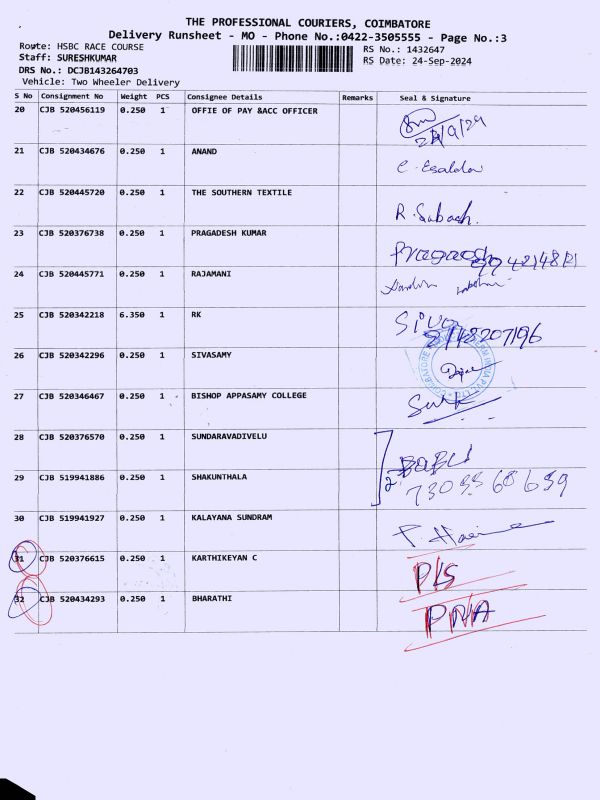 THE PROFESSIONAL COURIERS, COIMBATORE
Delivery Runsheet - MO - Phone No.:0422-3505555 - Page No.:3
Route: HSBC RACE COURSE
RS No.: 1432647
Staff: SURESHKUMAR
RS Date: 24-Sep-2024
DRS No.: DCJB143264703
Vehicle: Two Wheeler Delivery
S No Consignment No Weight PCS Consignee Details Remarks Seal & Signature
20 CJB 520456119 0.250 1 OFFIE OF PAY &ACC OFFICER
21 CJB 520434676 0.250 1 ANAND
22 CJB 520445720 0.250 1 THE SOUTHERN TEXTILE R.Subash.
23 CJB 520376738 0.250 1 PRAGADESH KUMAR
24 CJB 520445771 0.250 1 RAJAMANI
25 CJB 520342218 6.350 1 RK Siva
26 CJB 520342296 0.250 1 SIVASAMY
27 CJB 520346467 0.250 1 BISHOP APPASAMY COLLEGE
28 CJB 520376570 0.250 1 SUNDARAVADIVELU BABU
29 CJB 519941886 0.250 1 SHAKUNTHALA
30 CJB 519941927 0.250 1 KALAYANA SUNDRAM
31 CJB 520376615 0.250 1 KARTHIKEYAN C P/S
32 CJB 520434293 0.250 1 BHARATHI PNA